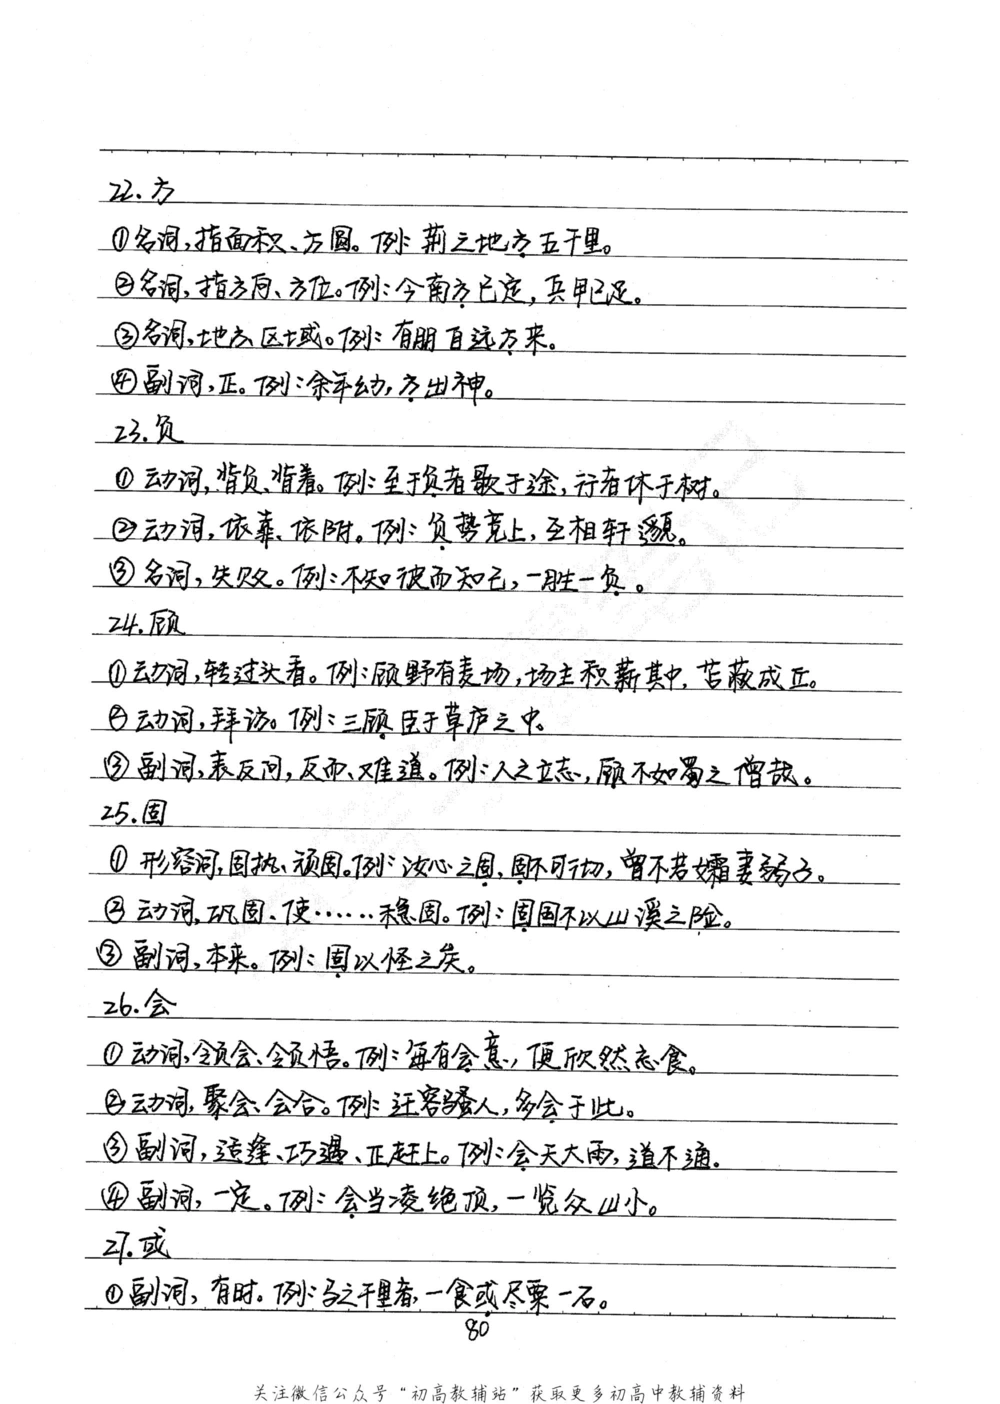 22.方
①名词,指面积、方圆。例:荆之地方五千里。
②名词,指方向、方位。例:今南方已定,兵甲已足。
③名词,地方区域。例:有朋自远方来。
④副词,正。例:余年幼,方出神。
23.负
①动词,背负、背着。例:至于负者歌于途,行者休于树。
②动词,依靠、依附。例:负势竞上,互相轩邈。
③名词,失败。例:不知彼而知己,一胜一负。
24.顾
①动词,转过头看。例:顾野有麦场,场主积薪其中,苫蔽成丘。
②动词,拜访。例:三顾臣于草庐之中。
③副词,表反问,反而、难道。例:人之立志,顾不如蜀之僧哉。
25.固
①形容词,固执、顽固。例:汝心之固,固不可彻,曾不若孀妻弱子。
②动词,巩固、使……稳固。例:固国不以山溪之险。
③副词,本来。例:固以怪之矣。
26.会
①动词,领会、领悟。例:每有会意,便欣然忘食。
②动词,聚会、会合。例:迁客骚人,多会于此。
③副词,适逢、巧遇、正赶上。例:会天大雨,道不通。
④副词,一定。例:会当凌绝顶,一览众山小。
27.或
①副词,有时。例:马之千里者,一食或尽粟一石。
80
关注微信公众号“初高教辅站”获取更多初高中教辅资料